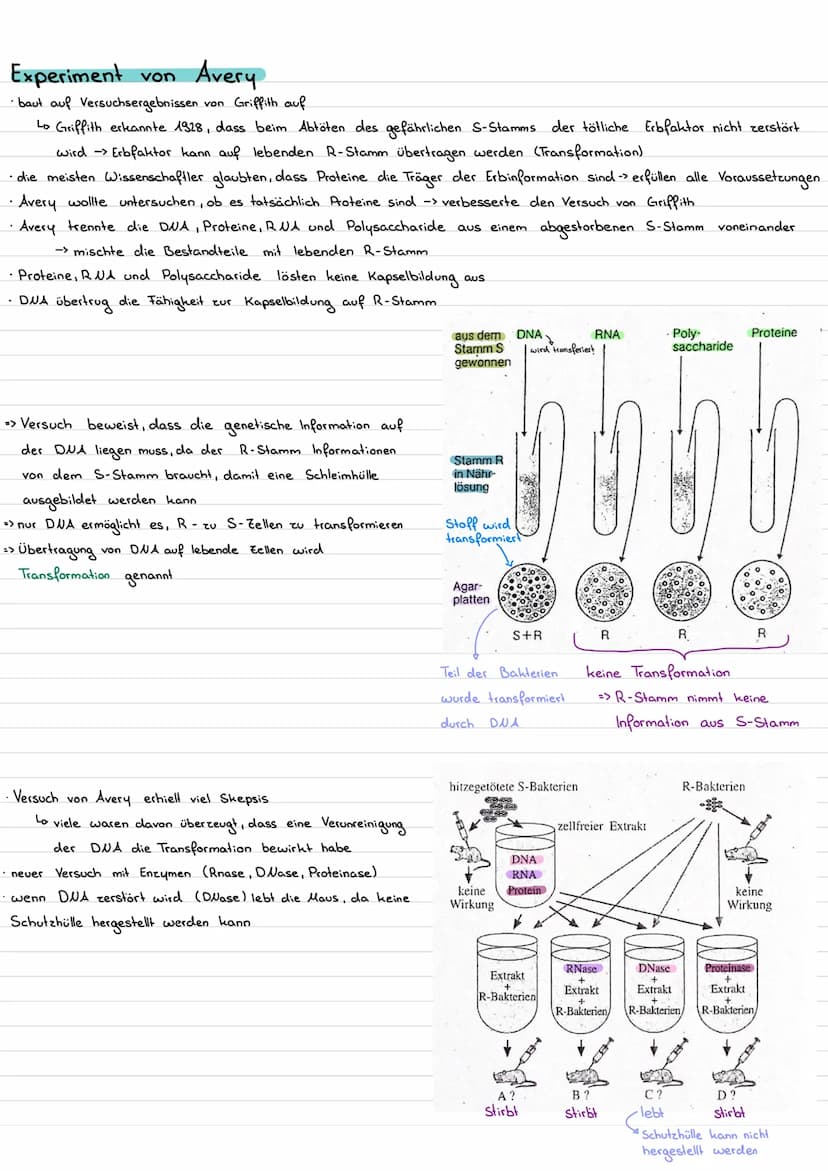 Experiment von Avery
· baut auf Versuchsergebnissen von Griffith auf
↳ Griffith erkannte 1928, dass beim Abtöten des gefährlichen S-Stamms der tötliche Erbfaktor nicht zerstört
wird → Erbfaktor kann auf lebenden R-Stamm übertragen werden (Transformation)
· die meisten Wissenschaftler glaubten, dass Proteine die Träger der Erbinformation sind → erfüllen alle Voraussetzungen
· Avery wollte untersuchen, ob es tatsächlich Proteine sind → verbesserte den Versuch von Griffith
· Avery trennte die DNA, Proteine, RNA und Polysaccharide aus einem abgestorbenen S-Stamm voneinander
→ mischte die Bestandteile mit lebenden R-Stamm
· Proteine, RNA und Polysaccharide lösten keine Kapselbildung aus
· DNA übertrug die Fähigkeit zur Kapselbildung auf R-Stamm
aus dem Stamm S gewonnen
DNA
wird transferiert
RNA
Poly-
saccharide
Proteine
=> Versuch beweist, dass die genetische Information auf
der DNA liegen muss, da der R-Stamm Informationen
von dem S-Stamm braucht, damit eine Schleimhülle
ausgebildet werden kann
=> nur DNA ermöglicht es, R- zu S-Zellen zu transformieren
=> Übertragung von DNA auf lebende Zellen wird
Transformation genannt
Stamm R
in Nähr-
lösung
Stoff wird
transformiert
Agar-
platten
S+R
R
R
R
Teil der Bakterien
wurde transformiert
durch DNA
keine Transformation
=> R-Stamm nimmt keine
Information aus S-Stamm
· Versuch von Avery erhiell viel Skepsis
↳ viele waren davon überzeugt, dass eine Verunreinigung
der DNA die Transformation bewirkt habe
· neuer Versuch mit Enzymen (Rnase, DNase, Proteinase)
· wenn DNA zerstört wird (DNase) lebt die Maus, da keine
Schutzhülle hergestellt werden kann
hitzegetötete S-Bakterien
R-Bakterien
zellfreier Extrakt
DNA
RNA
Protein
keine
Wirkung
keine
Wirkung
Extrakt
+
R-Bakterien
RNase
+
Extrakt
+
R-Bakterien
DNase
+
Extrakt
+
R-Bakterien
Proteinase
+
Extrakt
+
R-Bakterien
A ?
B ?
C ?
D ?
stirbt
stirbt
lebt
stirbt
Schutzhülle kann nicht
hergestellt werden